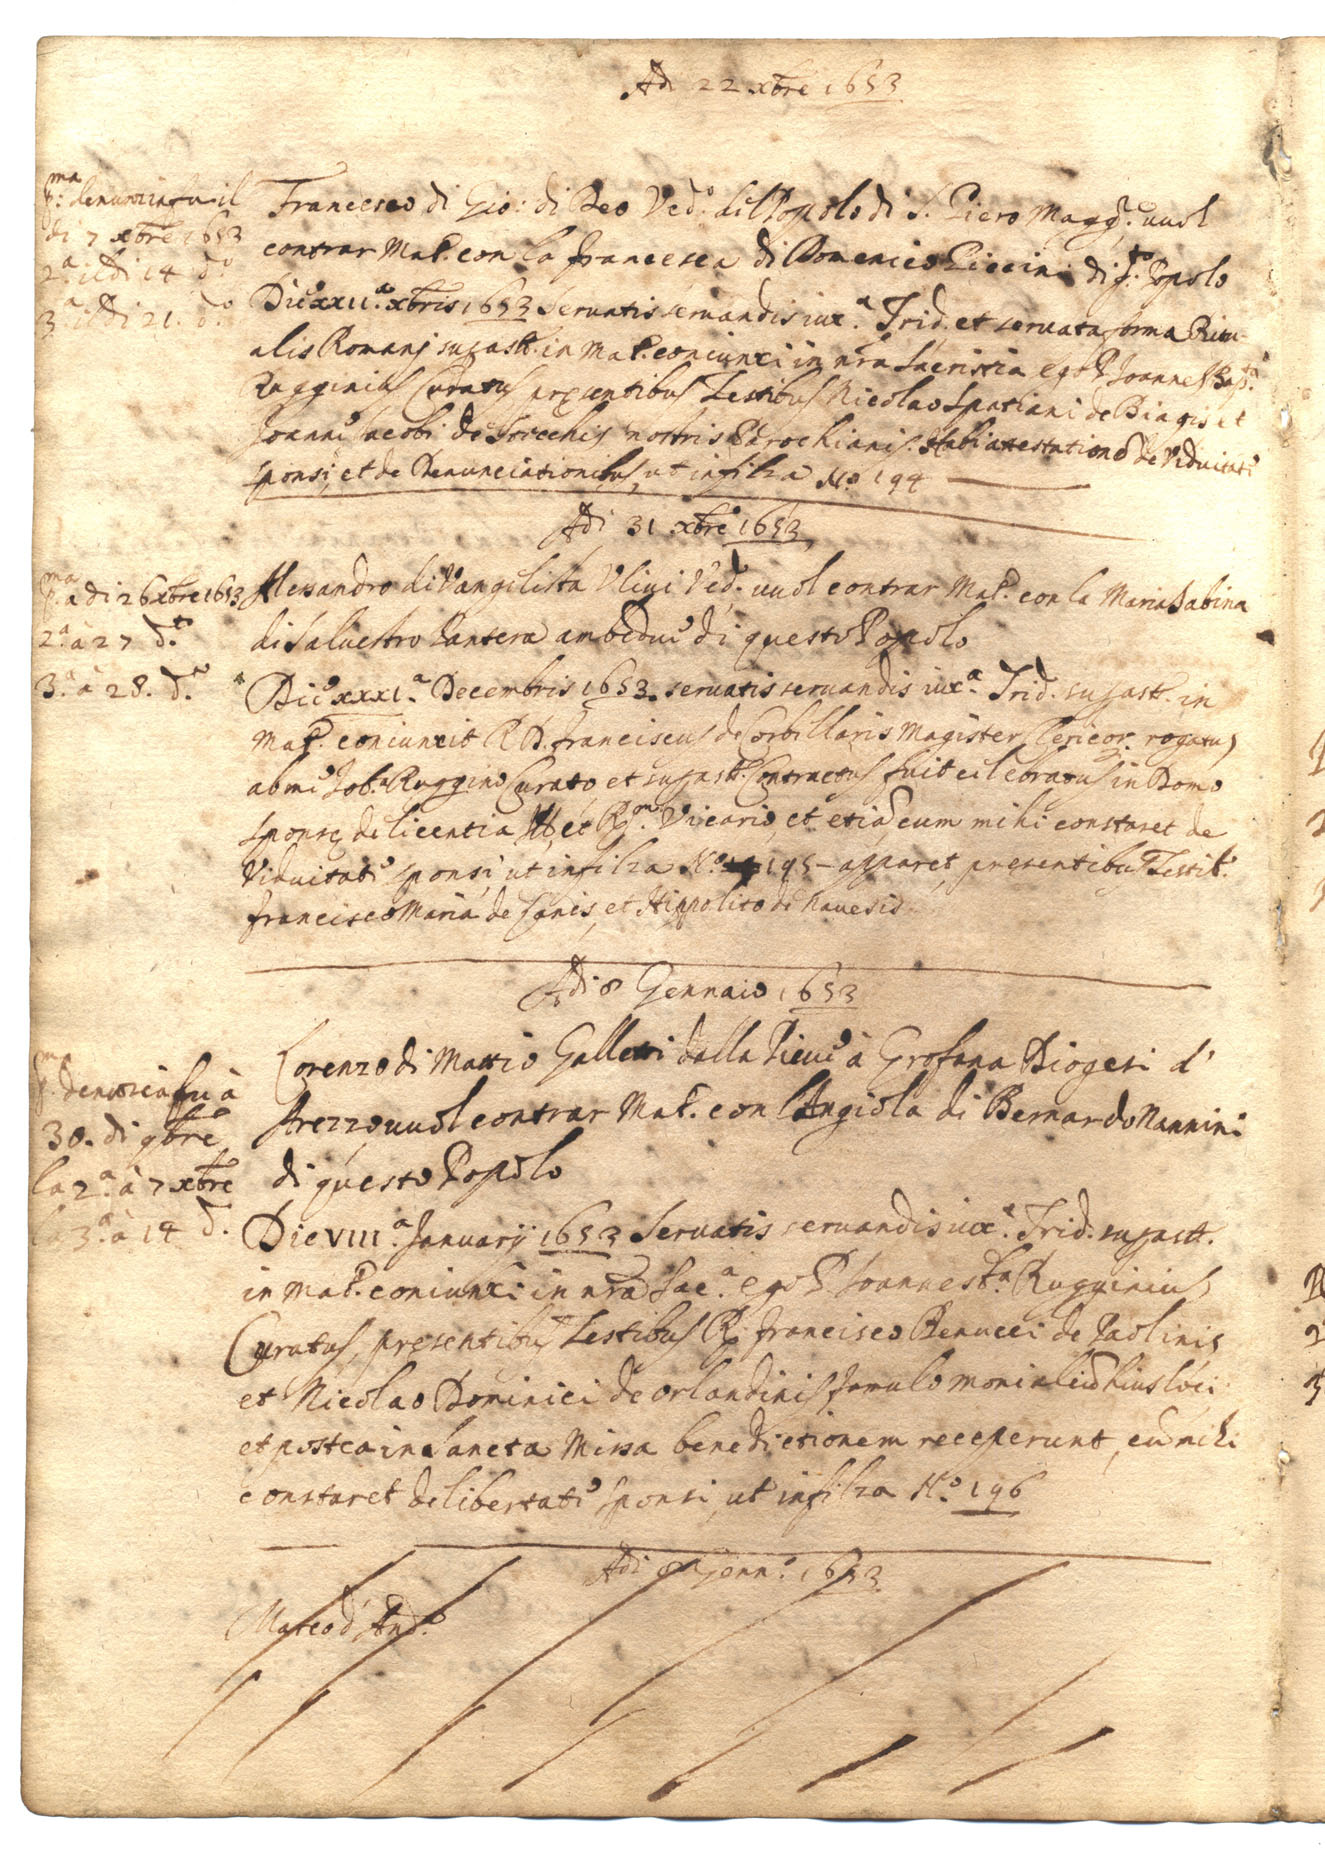 Adi 22 xbre 1653
p:ma denunzia fu il
di 7 xbre 1653
2.a il di 14 d.o
3.a il di 21. d.o
Francesco di Gio: di Deo Ved.o del Popolo di S. Piero Magg.e uuol
contrar Mat.o con la Francesca di Domenico Piccini di q.to Popolo
Die XXII.a xbris 1653 seruatis seruandis iux.a Trid. et seruata forma Ritu-
alis Romanj sup.astt. in Mat. coniunxi in nra Sacristia ego P Joannes Bap.ta
Rugginius Curatus presentibus Testibus Nicolao Spatiani de Biagis et
Joanne Jacobi de Socchis nostris Parochianis. Habi attestatione de Viduitate
sponsi, et de Denunciationibus, ut in filza N.o 194
Adi 31 xbre 1653
p.ma a di 26 xbre 1653
2.a à 27 d.to
3.a à 28. d.o
Alessandro di Vangelista Uliui Ved.o uuol contrar Mat.o con la Maria Sabina
di Saluestro Pantera ambedue di questo Popolo
Die XXXI.a Decembris 1653. seruatis seruandis iux.a Trid. sup.astt. in
Mat. coniunxit R.D. Franciscus de Corbillaris Magister Clericor. rogatus
ab me Job.a Ruggino Curato et sup.astt. Contractus fuit celebratus in Domo
sponse de licentia Ill. et R.mi Vicario, et etiã cum mihi constaret de
Viduitate sponsi, ut in filza N.o 195 - apparet, presentibus Testib.
Francisco Maria de Canis, et Hippolito de Nauesis
Adi 8 Gennaio 1653
p.ma denunzia fu à
30. di 9bre
la 2.a à 7 xbre
la 3.a à 14 d.
Lorenzo di Matteo Galletti dalla Pieue à Grofana Diogesi d'
Arezzo uuol contrar Mat.o con l'Angiola di Bernardo Nannini
di questo Popolo
Die VIII.a Januarij 1653 Seruatis seruandis iux.a Trid. sup.astt.
in Mat. coniunxi in nrã Sac.a ego P Joannes b.a Rugginius
Curatus, presentibus Testibus R. Francisco Benucci de Paolinis
et Nicolao Dominici de Orlandinis famulo monialiũ huius loci
et postea in Sancta Missa benedictionem receperunt, cũ mihi
constaret de libertate sponsi, ut in filza N.o 196
Adi 8 Genn.o 1653
Matteo d'And.a